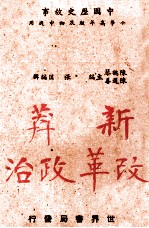 中國歷史故事
小學高年級及初中適用
陳鶴琴
陳選善
主編
張匡
編輯
新莽
改革政治
世界書局發行